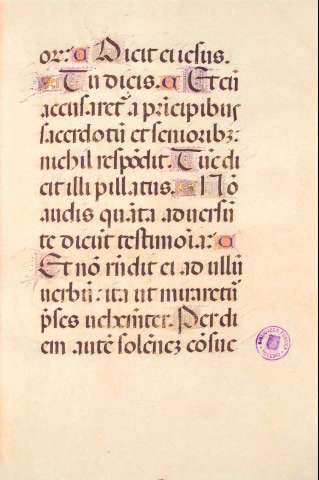 or: a Dicit ei iesus.
Tu dicis. a Et cū
accusaret᷑ a prīcipibus
sacerdotū et senioribz:
nichil respōdit. Tūc di
cit illi pillatus. Nō
audis quāta aduersū
te dicūt testimoīa: a
Et nō rn̄dit ei ad ullū
uerbū: ita ut miraretur̄
p̄ses uehemīter. Per di
em autē solēnez cōsue